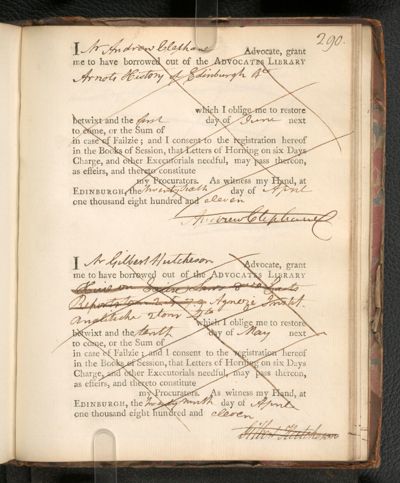 290.
I Mr Andrew Clephane Advocate, grant
me to have borrowed out of the ADVOCATES LIBRARY
Arnots History of Edinburgh 4to
which I oblige me to restore
betwixt and the first day of June next
to come, or the Sum of
in case of Failzie; and I consent to the registration hereof
in the Books of Session, that Letters of Horning on six Days
Charge, and other Executorials needful, may pass thereon,
as effeirs, and thereto constitute
my Procurators. As witness my Hand, at
EDINBURGH, the twenty sixth day of April
one thousand eight hundred and eleven
Andrew Clephane
I Mr Gilbert Hutcheson Advocate, grant
me to have borrowed out of the ADVOCATES LIBRARY
Reports
2 tom
which I oblige me to restore
betwixt and the tenth day of May next
to come, or the Sum of
in case of Failzie; and I consent to the registration hereof
in the Books of Session, that Letters of Horning on six Days
Charge, and other Executorials needful, may pass thereon,
as effeirs, and thereto constitute
my Procurators. As witness my Hand, at
EDINBURGH, the twenty ninth day of April
one thousand eight hundred and eleven
Gilbert Hutcheson